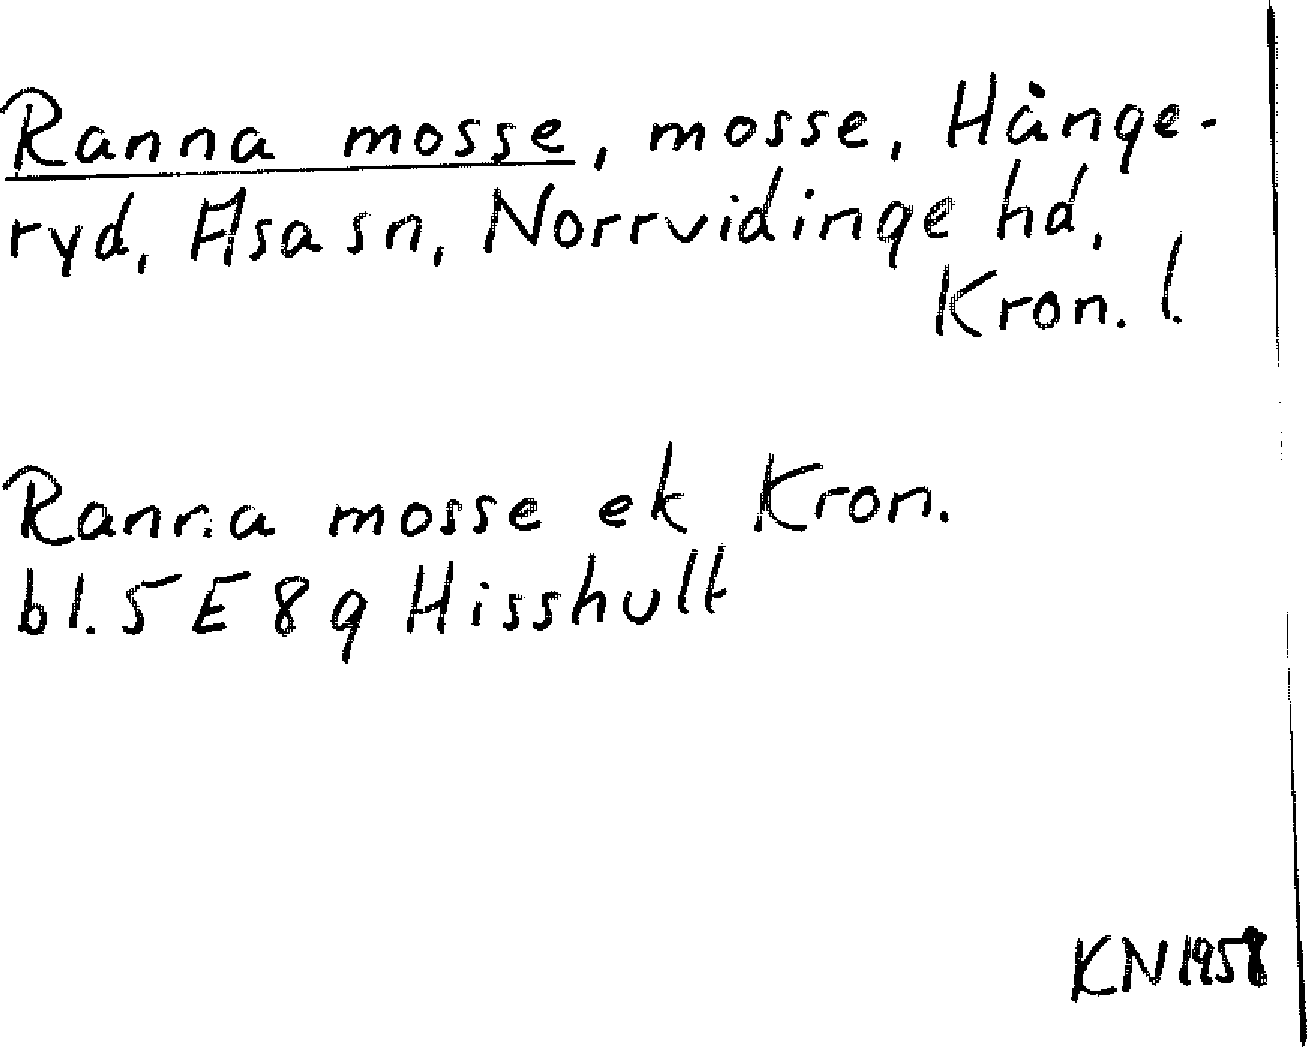 Ranna mosse, mosse, Hånge-
ryd, Asa sn, Norrvidinge hd,
Kron. l.
Ranna mosse ek Kron.
bl. 5 E 8 g Hisshult
KN 1958